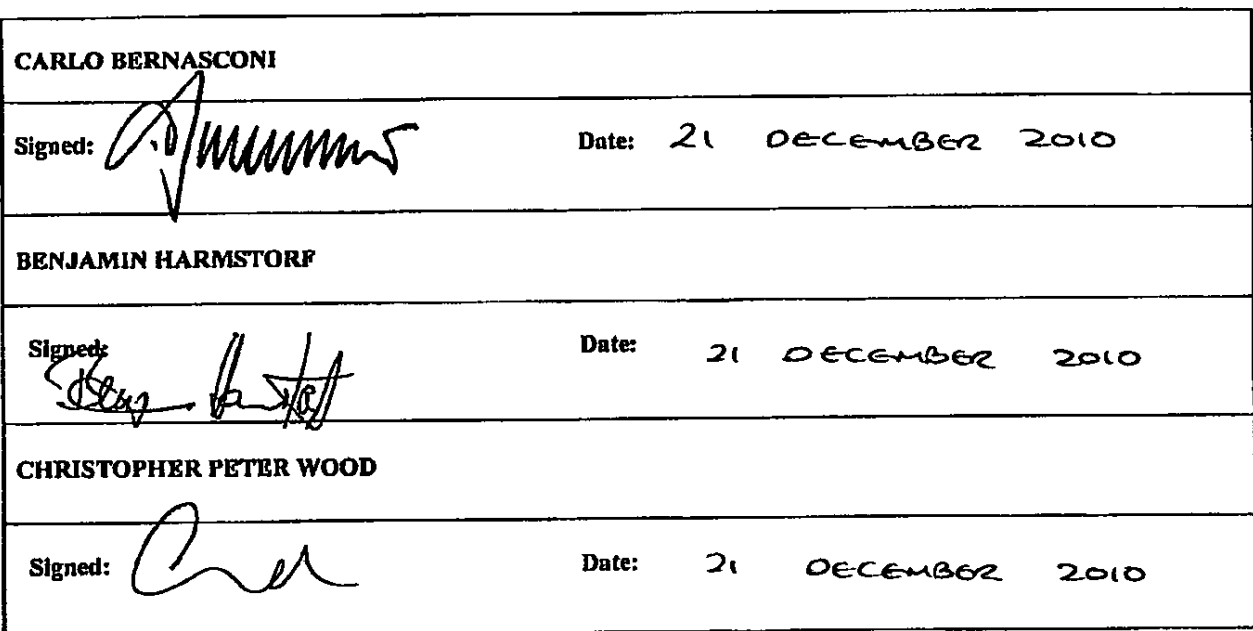 CARLO BERNASCONI
Signed: Date: 21 DECEMBER 2010
BENJAMIN HARMSTORF
Signed: Date: 21 DECEMBER 2010
CHRISTOPHER PETER WOOD
Signed: Date: 21 DECEMBER 2010